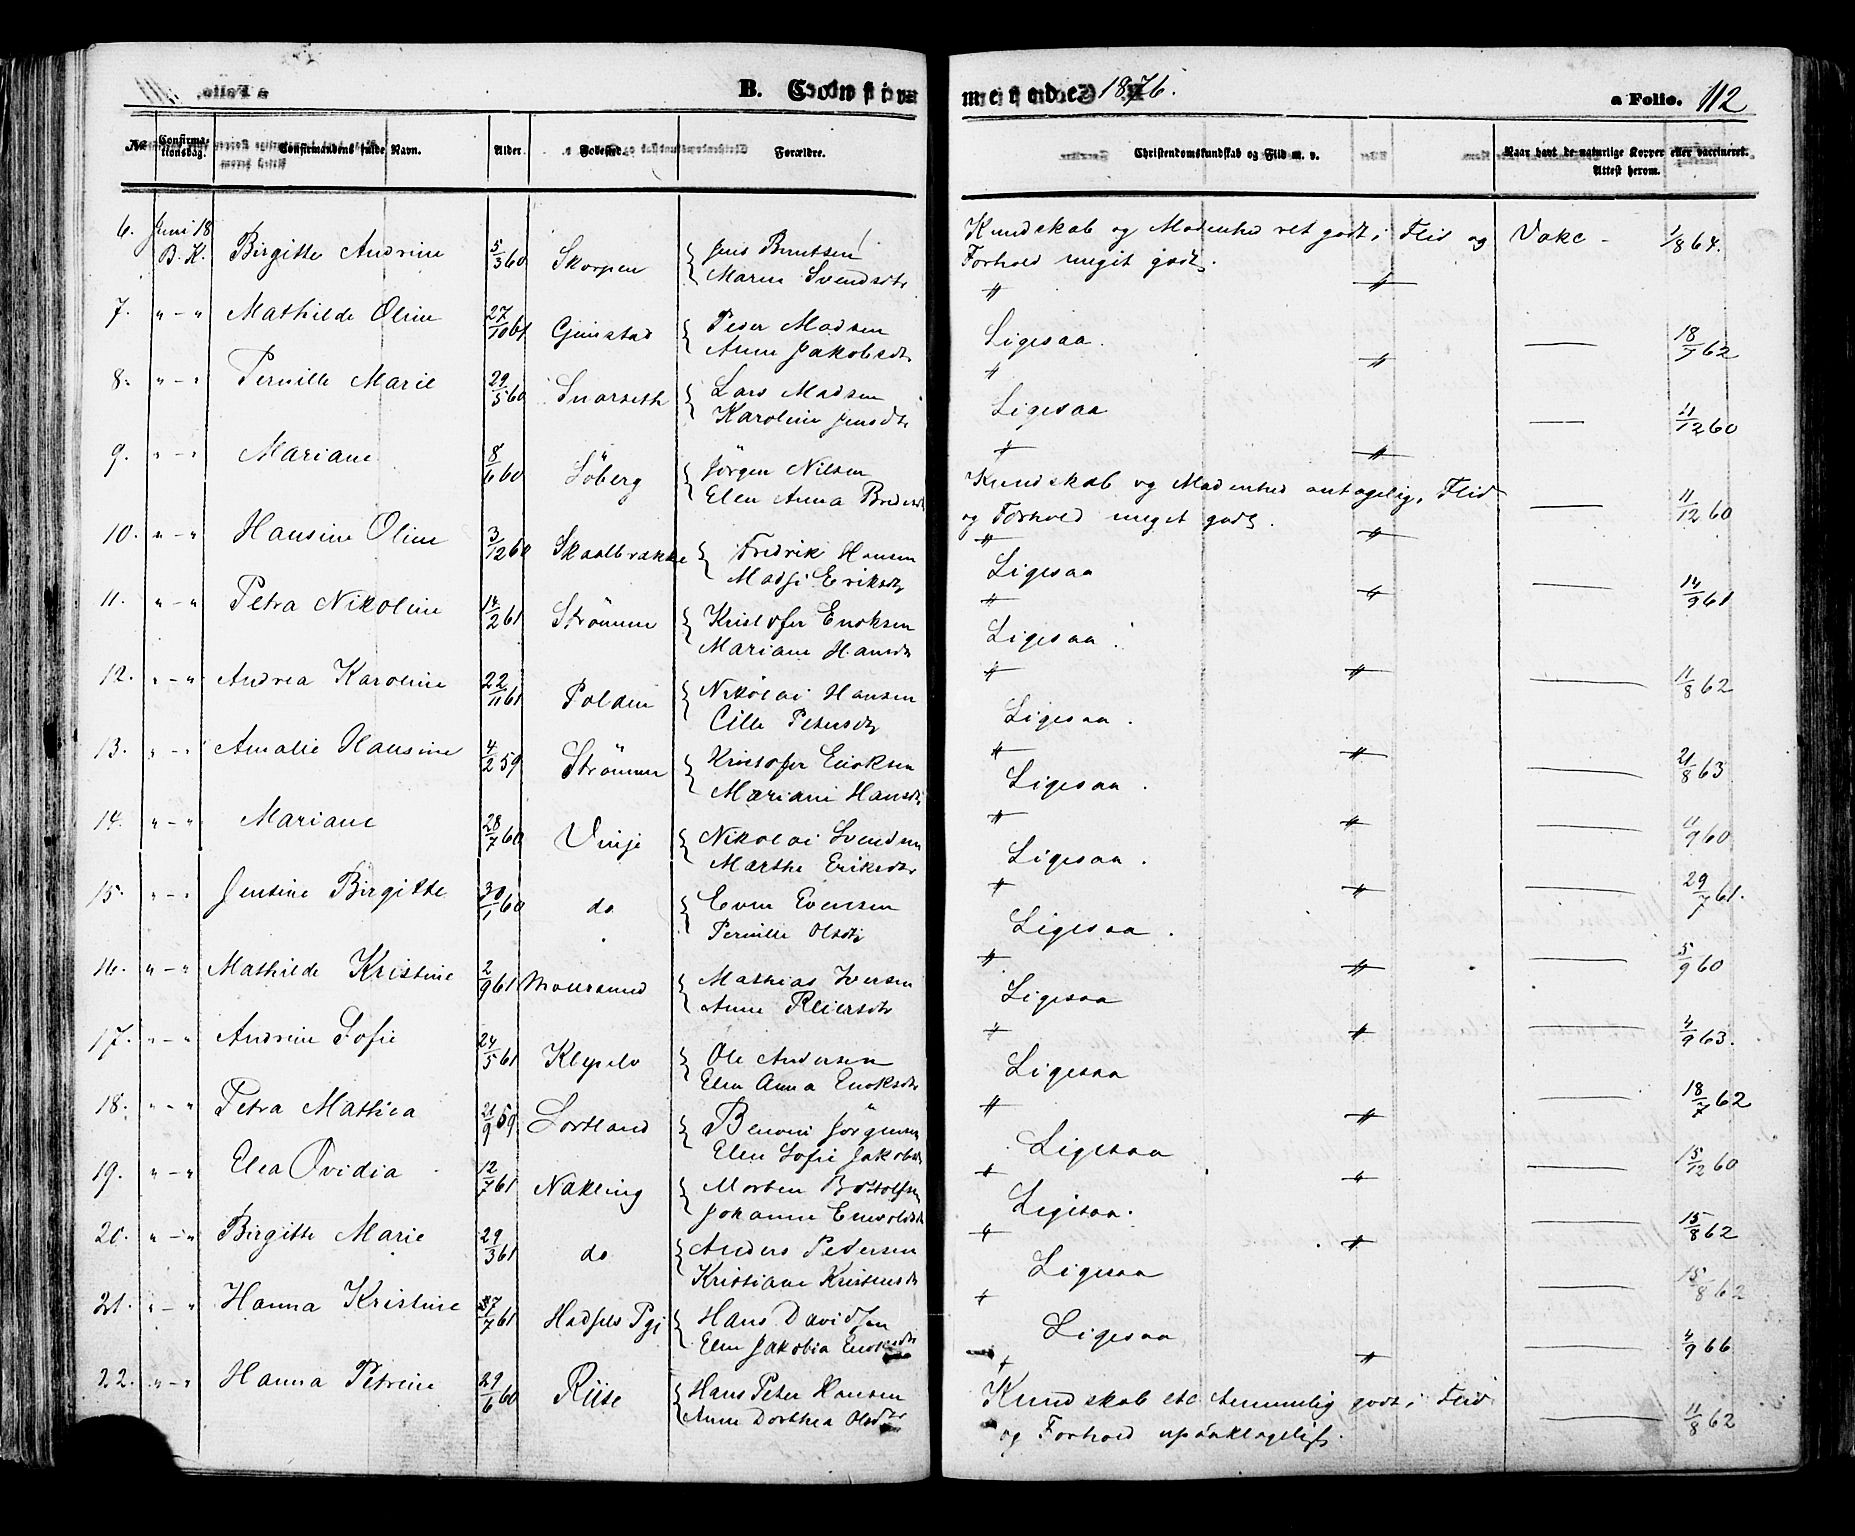 B. Confirmerede 1876. a Folio. 112
No Confirmationsdag. Confirmandens fulde Navn. Alder. Fødested. Forældre. Christendomskundskab og Flid m. v. Naar havt de naturlige Kopper eller vaccineret. Attest herom.
6. Juni 18 B. K. Birgitte Andrine 5/3 60 Skorpen { Jens Berntsen
Maren Svendsdtr
Kundskab og Modenhed ret godt; Flid og
Forhold meget godt. Vakc - 1/8 64.
7. " - " Mathilde Oline 27/10 61 Gimstad { Peder Madsen
Anne Jakobsdtr Ligesaa. 18/7 62
8. " - " Pernille Marie 29/5 60 Snarseth { Lars Madsen
Karoline Jensdtr Ligesaa 11/12 60
9. " - " Mariane 8/6 60 Söberg { Jörgen Nilsen
Elen Anna
Kundskab og Modenhed antagelig, Flid
og Forhold meget godt. 11/12 60
10. " - " Hansine Oline 3/12 60 Skaalbrække { Fredrik Hansen
Madsi Eriksdtr Ligesaa 14/9 61
11. " - " Petra Nikoline 14/2 61 Strömme { Kristofer Enoksen
Mariane Hansdtr Ligesaa 11/8 62
12. " - " Andrea Karoline 22/11 61 Polden { Nikolai Hansen
Cille Petersdtr Ligesaa. 21/8 63
13. " - " Amalie Hansine 4/2 59 Strömme { Kristofer Enoksen
Mariane Hansdtr Ligesaa. 11/9 60
14. " - " Mariane 28/7 60 Vinje { Nikolai Svendsen
Marthe Eriksdtr Ligesaa. 29/7 61.
15. " - " Jensine Birgitte 30/1 60 do { Even Evensen
Pernille Olsdtr Ligesaa. 5/9 60
16. " - " Mathilde Kristine 2/9 61 Maursund { Mathias Iversen
Anne Reiersdtr Ligesaa 4/9 63.
17. " - " Andrine Sofie 24/5 61 Klepelv { Ole Andersen
Elen Anna Enoksdtr Ligesaa 18/7 62
18. " - " Petra Mathea 21/9 59 Sortland { Benoni Jörgensen
Elen Sofie Jakobsdtr Ligesaa 15/12 60
19. " - " Elea Ovidia 12/7 61 Nakling { Morten Bottolfsen
Johanne Enevoldsdtr Ligesaa. 15/8 62
20. " - " Birgitte Marie 29/3 61 do { Anders Pedersen
Kristiane Kristensdtr Ligesaa 15/8 62
21. " - " Hanna Kristine 27/7 61 Hadsels Pgj { Hans Davidsen
Elen Jakobia Ligesaa 4/9 66
22. " - " Hanna Petrine 29/6 60 Riise { Hans Peter Hansen
Anne Dorthea Olsdtr
Kundskab etc temmelig godt; Flid
og Forhold upaaklageligt. 11/8 62